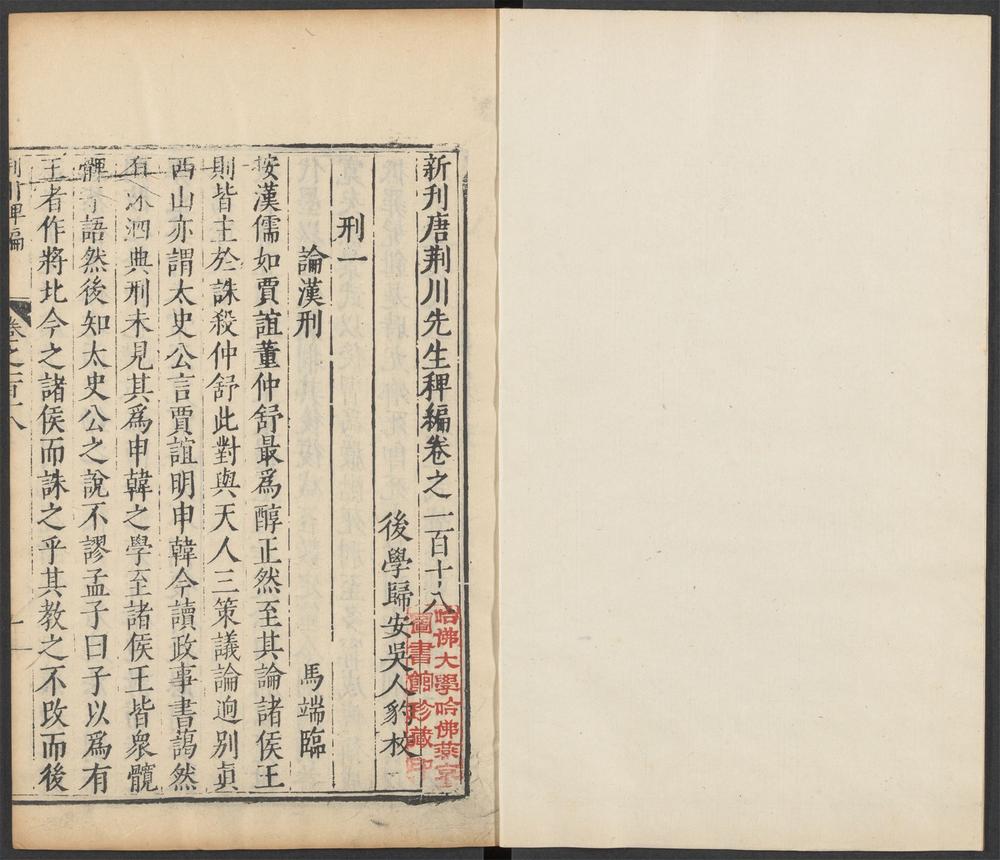 新刋唐荆川先生稗編卷之一百十八
後學歸安吳人豹校
刑一
論漢刑
馬端臨
按漢儒如賈誼董仲舒最爲醇正然至其論諸侯王
則皆主於誅殺仲舒此對與天人三策議論逈别眞
西山亦謂太史公言賈誼明申韓今讀政事書藹然
有洙泗典刑未見其爲申韓之學至諸侯王皆衆髖
髀等語然後知太史公之說不謬孟子曰子以爲有
王者作將比今之諸侯而誅之乎其教之不改而後
荆川稗編
卷之一百十八
一
哈佛大學哈佛燕京
圖書館珍藏印